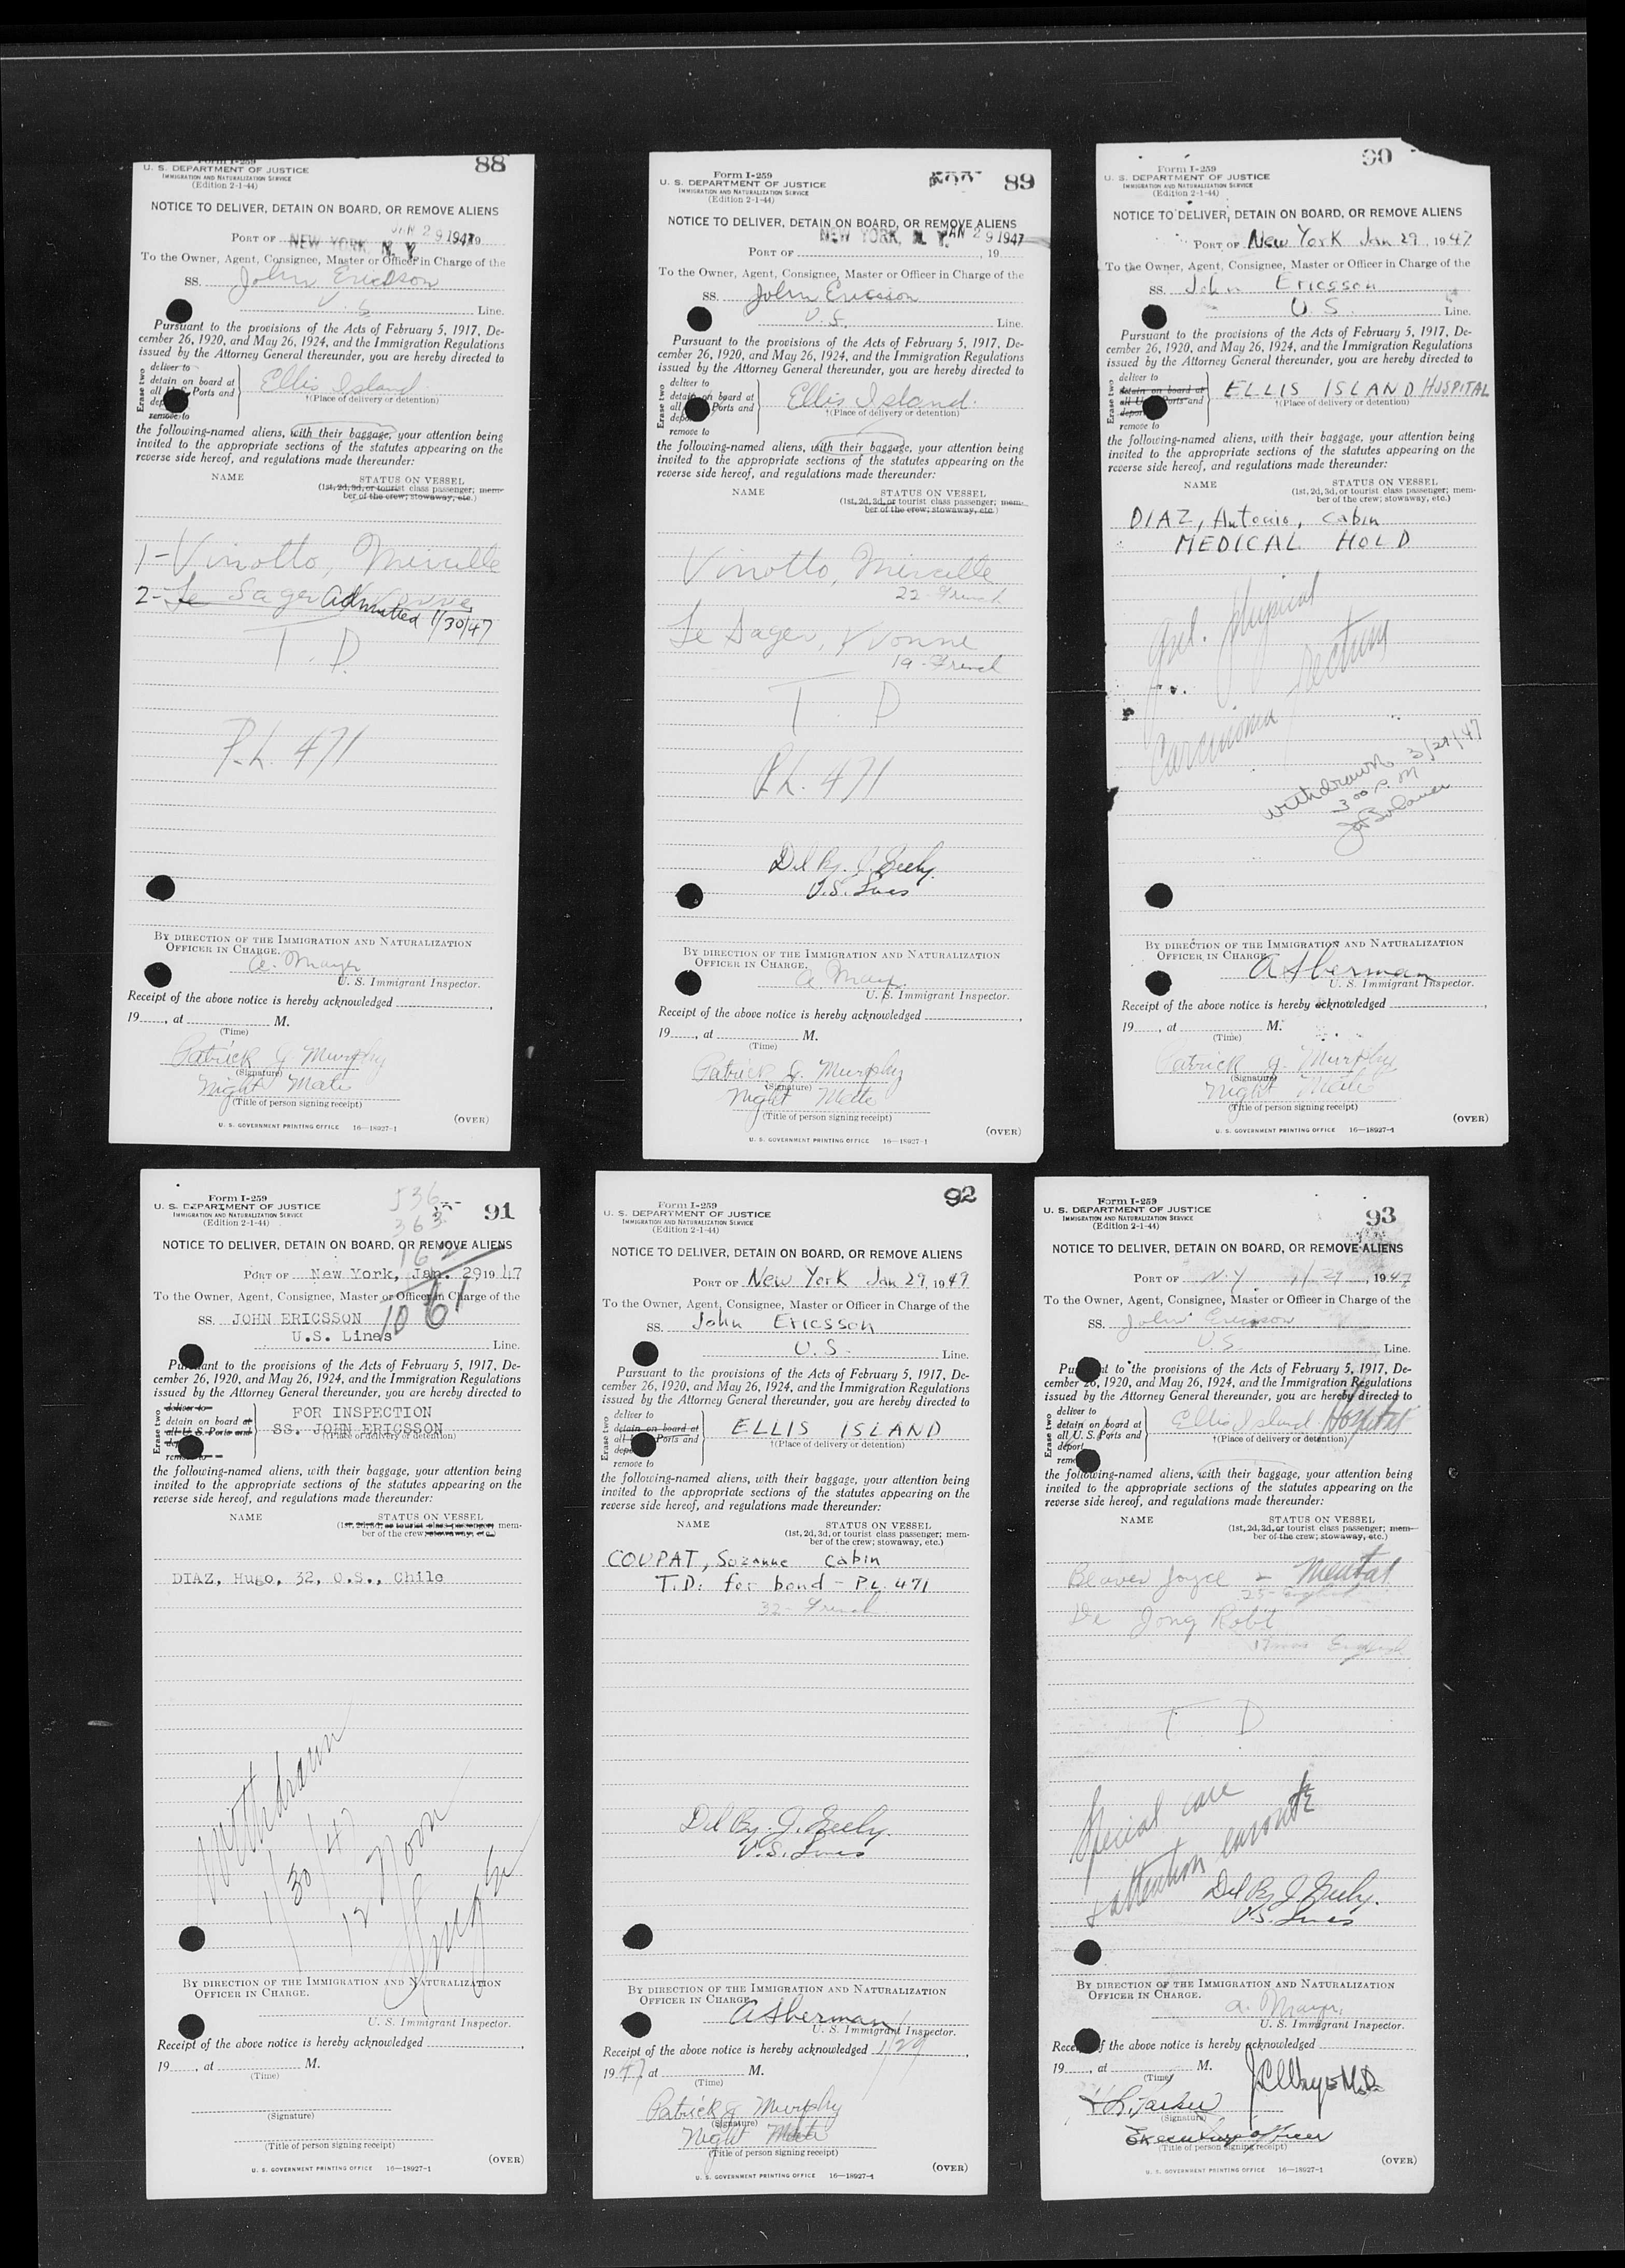 88
Form I-259
U. S. DEPARTMENT OF JUSTICE
IMMIGRATION AND NATURALIZATION SERVICE
(Edition 2-1-44)
NOTICE TO DELIVER, DETAIN ON BOARD, OR REMOVE ALIENS
JAN 29 1947
PORT OF NEW YORK, N. Y. 19
To the Owner, Agent, Consignee, Master or Officer in Charge of the
SS. John Ericsson
U. S. Line.
Pursuant to the provisions of the Acts of February 5, 1917, De-
cember 26, 1920, and May 26, 1924, and the Immigration Regulations
issued by the Attorney General thereunder, you are hereby directed to
Erase two
deliver to
detain on board at
all U. S. Ports and
dep
remove to
Ellis Island
†(Place of delivery or detention)
the following-named aliens, with their baggage, your attention being
invited to the appropriate sections of the statutes appearing on the
reverse side hereof, and regulations made thereunder:
NAME STATUS ON VESSEL
(1st, 2d, 3d, or tourist class passenger; mem-
ber of the crew; stowaway, etc.)
1- Vinotto, Mireille
2- Le Sager Yvonne Admitted 1/30/47
T. D.
P.L. 471
BY DIRECTION OF THE IMMIGRATION AND NATURALIZATION
OFFICER IN CHARGE.
A. Mayer
U. S. Immigrant Inspector.
Receipt of the above notice is hereby acknowledged
19, at M.
(Time)
Patrick J Murphy
(Signature)
Night Mate
(Title of person signing receipt)
(OVER)
U. S. GOVERNMENT PRINTING OFFICE 16—18927-1
89
Form I-259
U. S. DEPARTMENT OF JUSTICE
IMMIGRATION AND NATURALIZATION SERVICE
(Edition 2-1-44)
NOTICE TO DELIVER, DETAIN ON BOARD, OR REMOVE ALIENS
NEW YORK, N. Y. JAN 29 1947
PORT OF , 19
To the Owner, Agent, Consignee, Master or Officer in Charge of the
SS. John Ericsson
U.S. Line.
Pursuant to the provisions of the Acts of February 5, 1917, De-
cember 26, 1920, and May 26, 1924, and the Immigration Regulations
issued by the Attorney General thereunder, you are hereby directed to
Erase two
deliver to
detain on board at
all Ports and
remove to
Ellis Island.
†(Place of delivery or detention)
the following-named aliens, with their baggage, your attention being
invited to the appropriate sections of the statutes appearing on the
reverse side hereof, and regulations made thereunder:
NAME STATUS ON VESSEL
(1st, 2d, 3d, or tourist class passenger; mem-
ber of the crew; stowaway, etc.)
Vinotto, Mireille
22 - French
Le Sager, Yvonne
19 - French
T. D
P.L. 471
Del By. J. Seely.
U.S. Lines
BY DIRECTION OF THE IMMIGRATION AND NATURALIZATION
OFFICER IN CHARGE.
A Mayer
U. S. Immigrant Inspector.
Receipt of the above notice is hereby acknowledged
19, at M.
(Time)
Patrick J. Murphy
(Signature)
Night Mate
(Title of person signing receipt)
(OVER)
U. S. GOVERNMENT PRINTING OFFICE 16—18927-1
90
Form I-259
U. S. DEPARTMENT OF JUSTICE
IMMIGRATION AND NATURALIZATION SERVICE
(Edition 2-1-44)
NOTICE TO DELIVER, DETAIN ON BOARD, OR REMOVE ALIENS
PORT OF New York Jan 29, 1947
To the Owner, Agent, Consignee, Master or Officer in Charge of the
SS. John Ericsson
U.S. Line.
Pursuant to the provisions of the Acts of February 5, 1917, De-
cember 26, 1920, and May 26, 1924, and the Immigration Regulations
issued by the Attorney General thereunder, you are hereby directed to
Erase two
deliver to
detain on board at
all U. S. Ports and
depor
remove to
ELLIS ISLAND HOSPITAL
†(Place of delivery or detention)
the following-named aliens, with their baggage, your attention being
invited to the appropriate sections of the statutes appearing on the
reverse side hereof, and regulations made thereunder:
NAME STATUS ON VESSEL
(1st, 2d, 3d, or tourist class passenger; mem-
ber of the crew; stowaway, etc.)
DIAZ, Antonio, cabin
MEDICAL HOLD
Gnl. physical
Carcinoma rectum
withdrawn 3/21/47
3 00 P. M
BY DIRECTION OF THE IMMIGRATION AND NATURALIZATION
OFFICER IN CHARGE.
A Sherman
U. S. Immigrant Inspector.
Receipt of the above notice is hereby acknowledged
19, at M.
(Time)
Patrick J. Murphy
(Signature)
Night Mate
(Title of person signing receipt)
(OVER)
U. S. GOVERNMENT PRINTING OFFICE 16—18927-1
91
536
363
162
1061
Form I-259
U. S. DEPARTMENT OF JUSTICE
IMMIGRATION AND NATURALIZATION SERVICE
(Edition 2-1-44)
NOTICE TO DELIVER, DETAIN ON BOARD, OR REMOVE ALIENS
PORT OF New York, Jan. 29 1947
To the Owner, Agent, Consignee, Master or Officer in Charge of the
SS. JOHN ERICSSON
U.S. Lines Line.
Pursuant to the provisions of the Acts of February 5, 1917, De-
cember 26, 1920, and May 26, 1924, and the Immigration Regulations
issued by the Attorney General thereunder, you are hereby directed to
Erase two
deliver to
detain on board at
all U. S. Ports and
dep
remove to
FOR INSPECTION
SS. JOHN ERICSSON
†(Place of delivery or detention)
the following-named aliens, with their baggage, your attention being
invited to the appropriate sections of the statutes appearing on the
reverse side hereof, and regulations made thereunder:
NAME STATUS ON VESSEL
(1st, 2d, 3d, or tourist class passenger; mem-
ber of the crew; stowaway, etc.)
DIAZ, Hugo, 32, O.S., Chile
Withdrawn
1/30/47
12 Noon
BY DIRECTION OF THE IMMIGRATION AND NATURALIZATION
OFFICER IN CHARGE.
U. S. Immigrant Inspector.
Receipt of the above notice is hereby acknowledged
19, at M.
(Time)
(Signature)
(Title of person signing receipt)
(OVER)
U. S. GOVERNMENT PRINTING OFFICE 16—18927-1
92
Form I-259
U. S. DEPARTMENT OF JUSTICE
IMMIGRATION AND NATURALIZATION SERVICE
(Edition 2-1-44)
NOTICE TO DELIVER, DETAIN ON BOARD, OR REMOVE ALIENS
PORT OF New York Jan 29, 1949
To the Owner, Agent, Consignee, Master or Officer in Charge of the
SS. John Ericsson
U.S. Line.
Pursuant to the provisions of the Acts of February 5, 1917, De-
cember 26, 1920, and May 26, 1924, and the Immigration Regulations
issued by the Attorney General thereunder, you are hereby directed to
Erase two
deliver to
detain on board at
all Ports and
depo
remove to
ELLIS ISLAND
†(Place of delivery or detention)
the following-named aliens, with their baggage, your attention being
invited to the appropriate sections of the statutes appearing on the
reverse side hereof, and regulations made thereunder:
NAME STATUS ON VESSEL
(1st, 2d, 3d, or tourist class passenger; mem-
ber of the crew; stowaway, etc.)
COUPAT, Suzanne cabin
T.D. for bond - PL 471
32 - French
Del By. J. Seely.
U.S. Lines
BY DIRECTION OF THE IMMIGRATION AND NATURALIZATION
OFFICER IN CHARGE.
A Sherman
U. S. Immigrant Inspector.
Receipt of the above notice is hereby acknowledged 1/29,
1947 at M.
(Time)
Patrick J Murphy
(Signature)
Night Mate
(Title of person signing receipt)
(OVER)
U. S. GOVERNMENT PRINTING OFFICE 16—18927-1
93
Form I-259
U. S. DEPARTMENT OF JUSTICE
IMMIGRATION AND NATURALIZATION SERVICE
(Edition 2-1-44)
NOTICE TO DELIVER, DETAIN ON BOARD, OR REMOVE ALIENS
PORT OF N.Y 1/29, 1947
To the Owner, Agent, Consignee, Master or Officer in Charge of the
SS. John Ericsson
U.S. Line.
Pursuant to the provisions of the Acts of February 5, 1917, De-
cember 26, 1920, and May 26, 1924, and the Immigration Regulations
issued by the Attorney General thereunder, you are hereby directed to
Erase two
deliver to
detain on board at
all U. S. Ports and
deport
remo
Ellis Island Hospital
†(Place of delivery or detention)
the following-named aliens, with their baggage, your attention being
invited to the appropriate sections of the statutes appearing on the
reverse side hereof, and regulations made thereunder:
NAME STATUS ON VESSEL
(1st, 2d, 3d, or tourist class passenger; mem-
ber of the crew; stowaway, etc.)
Beaver Joyce - Mental
25 - English
De Jong Robt
17 mos English
T D
Special care
& attention enroute
Del By J. Seely.
U.S. Lines
BY DIRECTION OF THE IMMIGRATION AND NATURALIZATION
OFFICER IN CHARGE.
A. Mayer,
U. S. Immigrant Inspector.
Receipt of the above notice is hereby acknowledged
19, at M.
(Time)
Parker
(Signature)
Executive officer
(Title of person signing receipt)
(OVER)
U. S. GOVERNMENT PRINTING OFFICE 16—18927-1